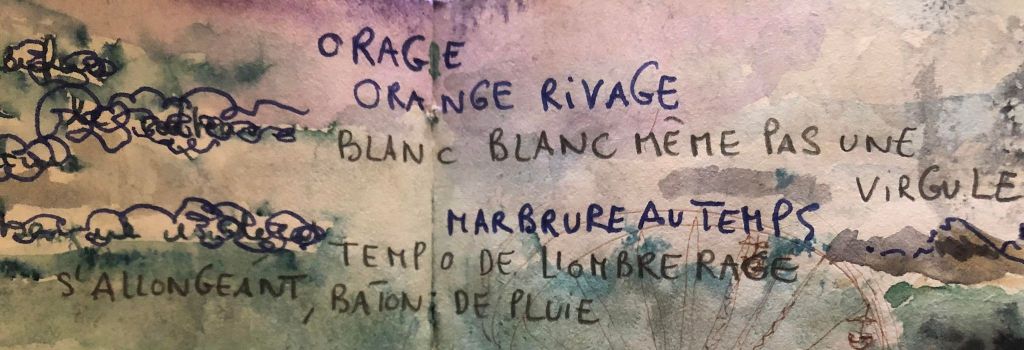 ORAGE
ORANGE RIVAGE
BLANC BLANC MÊME PAS UNE
VIRGULE
MARBRURE AU TEMPS
TEMPO DE L'OMBRE RAGE
S'ALLONGEANT, BATON DE PLUIE